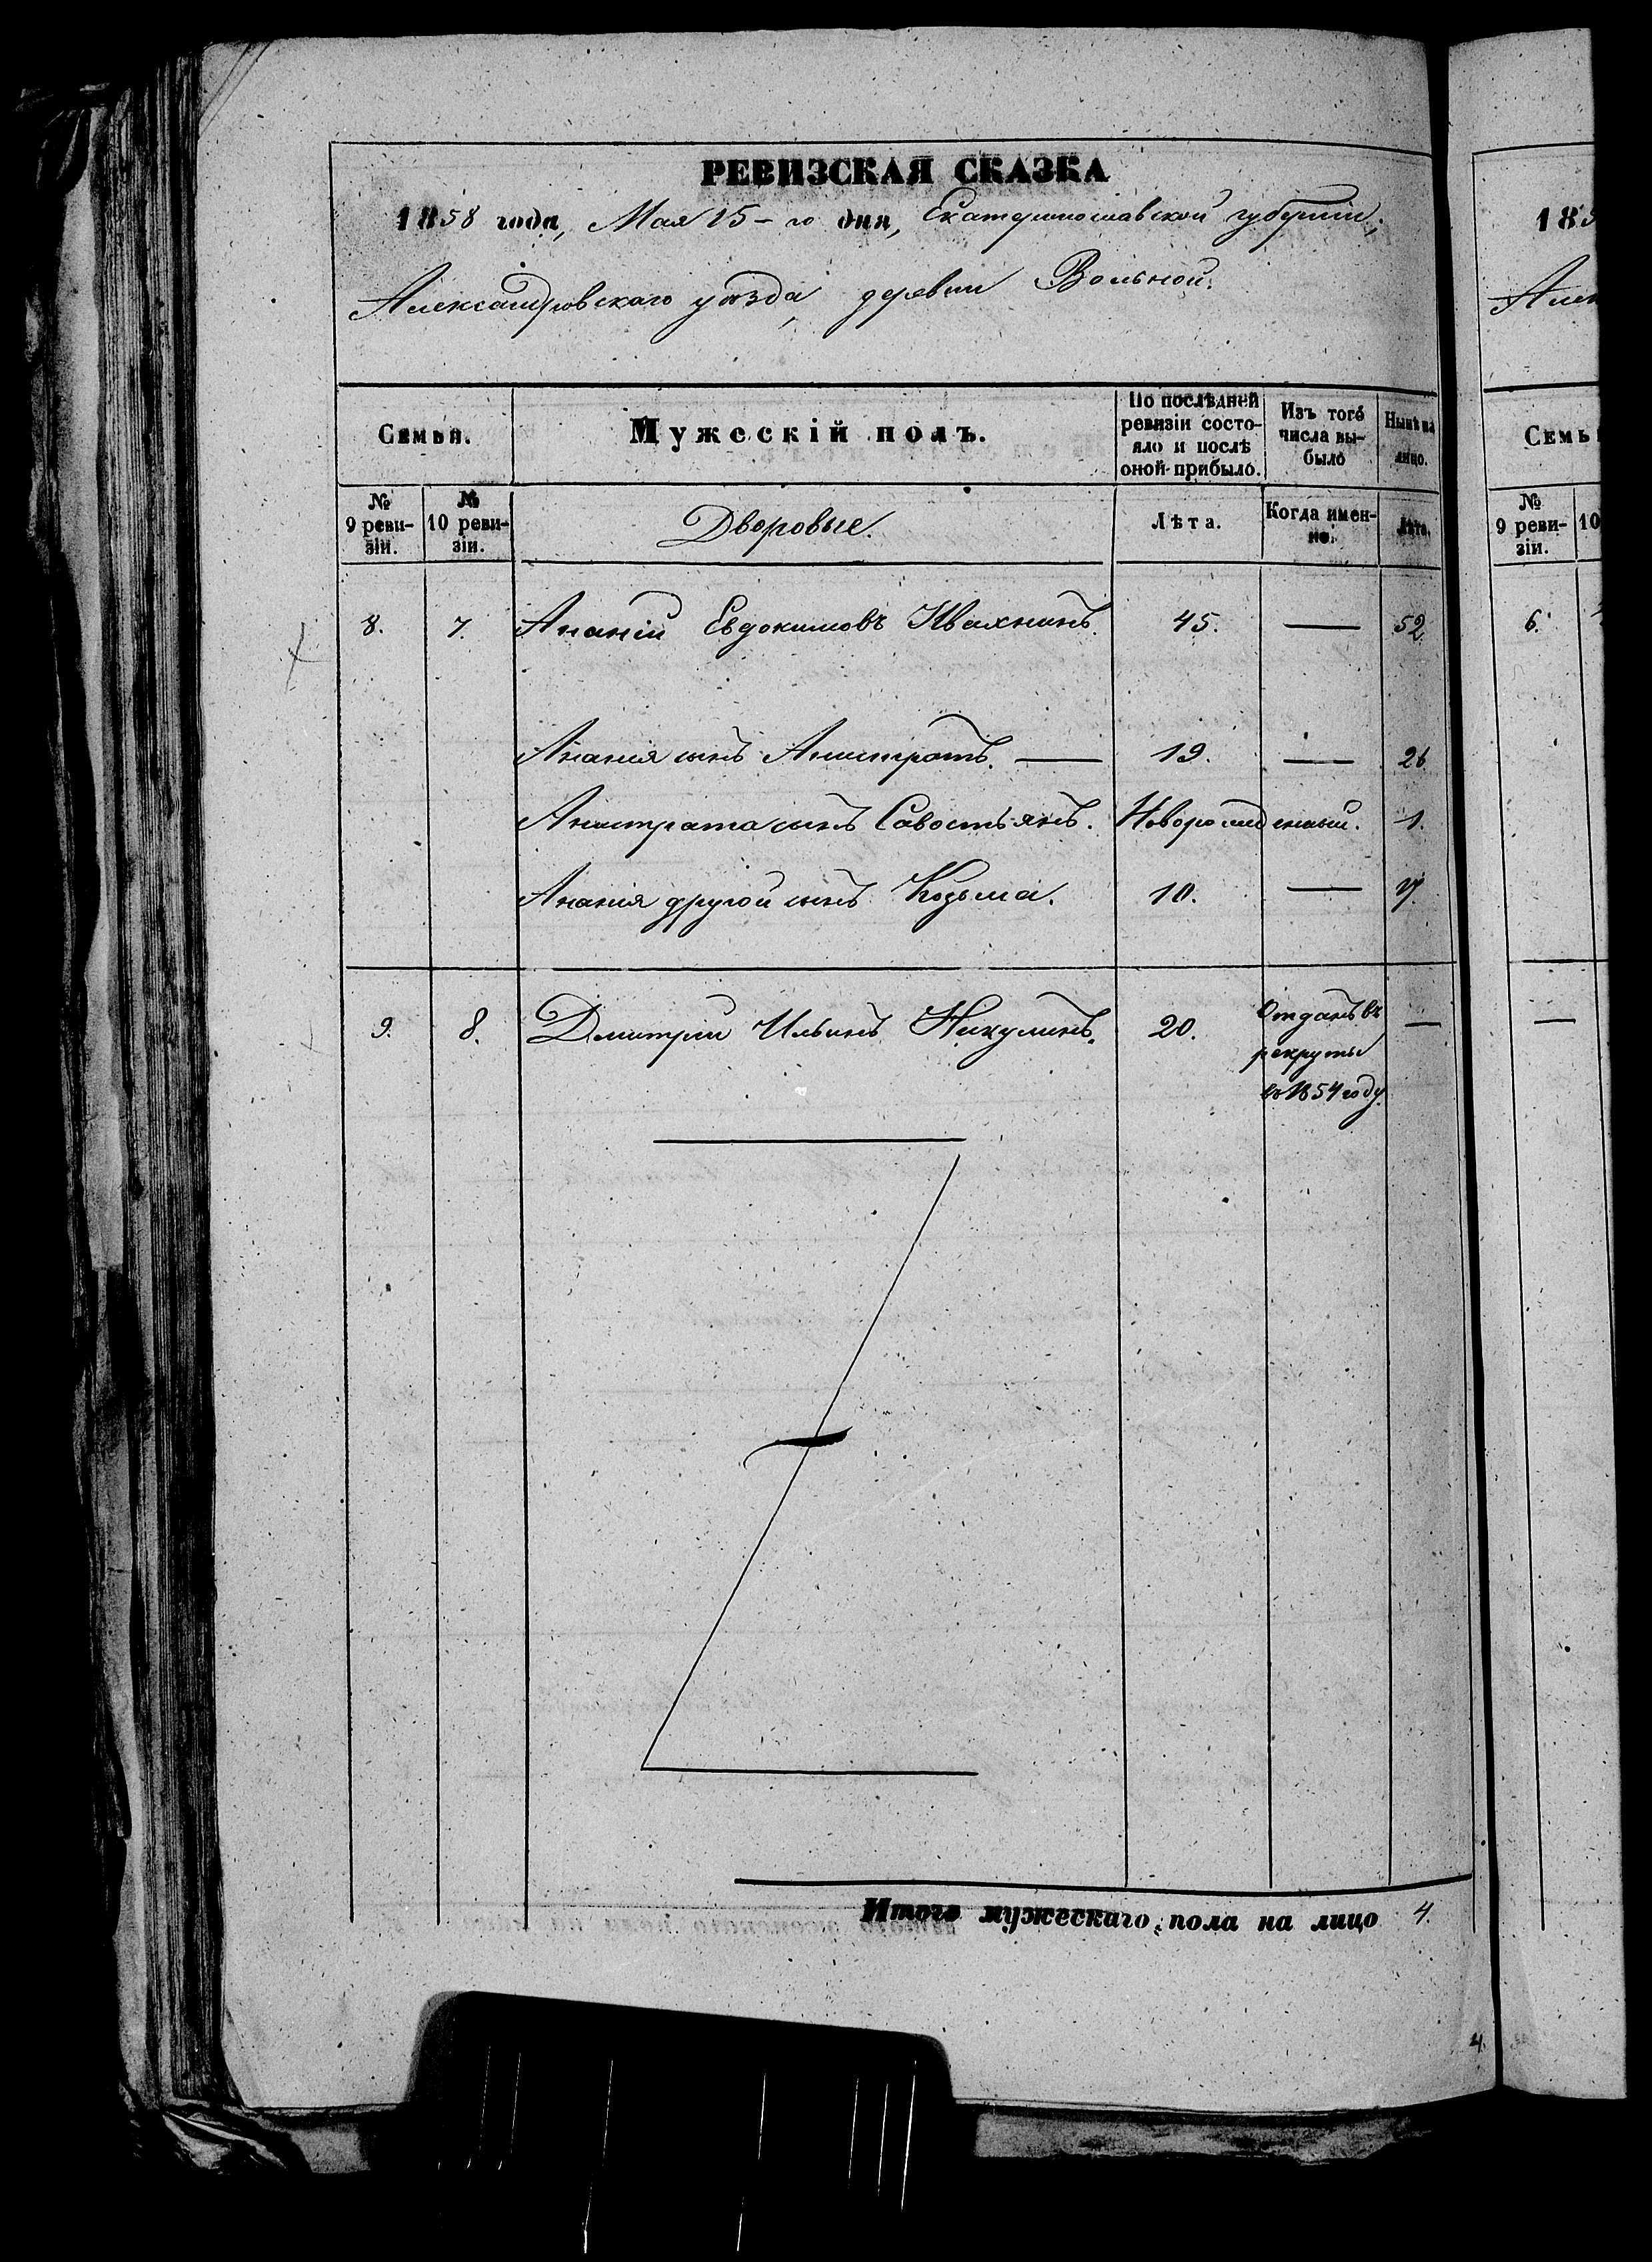 РЕВИЗСКАЯ СКАЗКА
1858 года, Мая 15-го дня, Екатеринославской губерніи,
Александровскаго уѣзда, деревни Вольной.
Семьи. Мужескій полъ. По послѣдней ревизіи состояло и послѣ оной прибыло. Изъ того числа выбыло Нынѣ на лицо.
№ 9 ревизіи. № 10 ревизіи. Дворовые. Лѣта. Когда именно. Лѣта.
8. 7. Ананій Евдокимовъ Ивахнинъ. 45. — 52.
Ананія сынъ Анистратъ. — 19. — 26
Анистрата сынъ Савостьянъ. Новорожденный. 1.
Ананія другой сынъ Козьма. 10. — 17.
9. 8. Дмитрій Ильинъ Никулинъ. 20. Отданъ въ —
рекруты
въ 1854 году.
Итого мужескаго пола на лицо 4.
4.
185
Алек
Семь
№
9 реви- 10
зіи.
6.
—